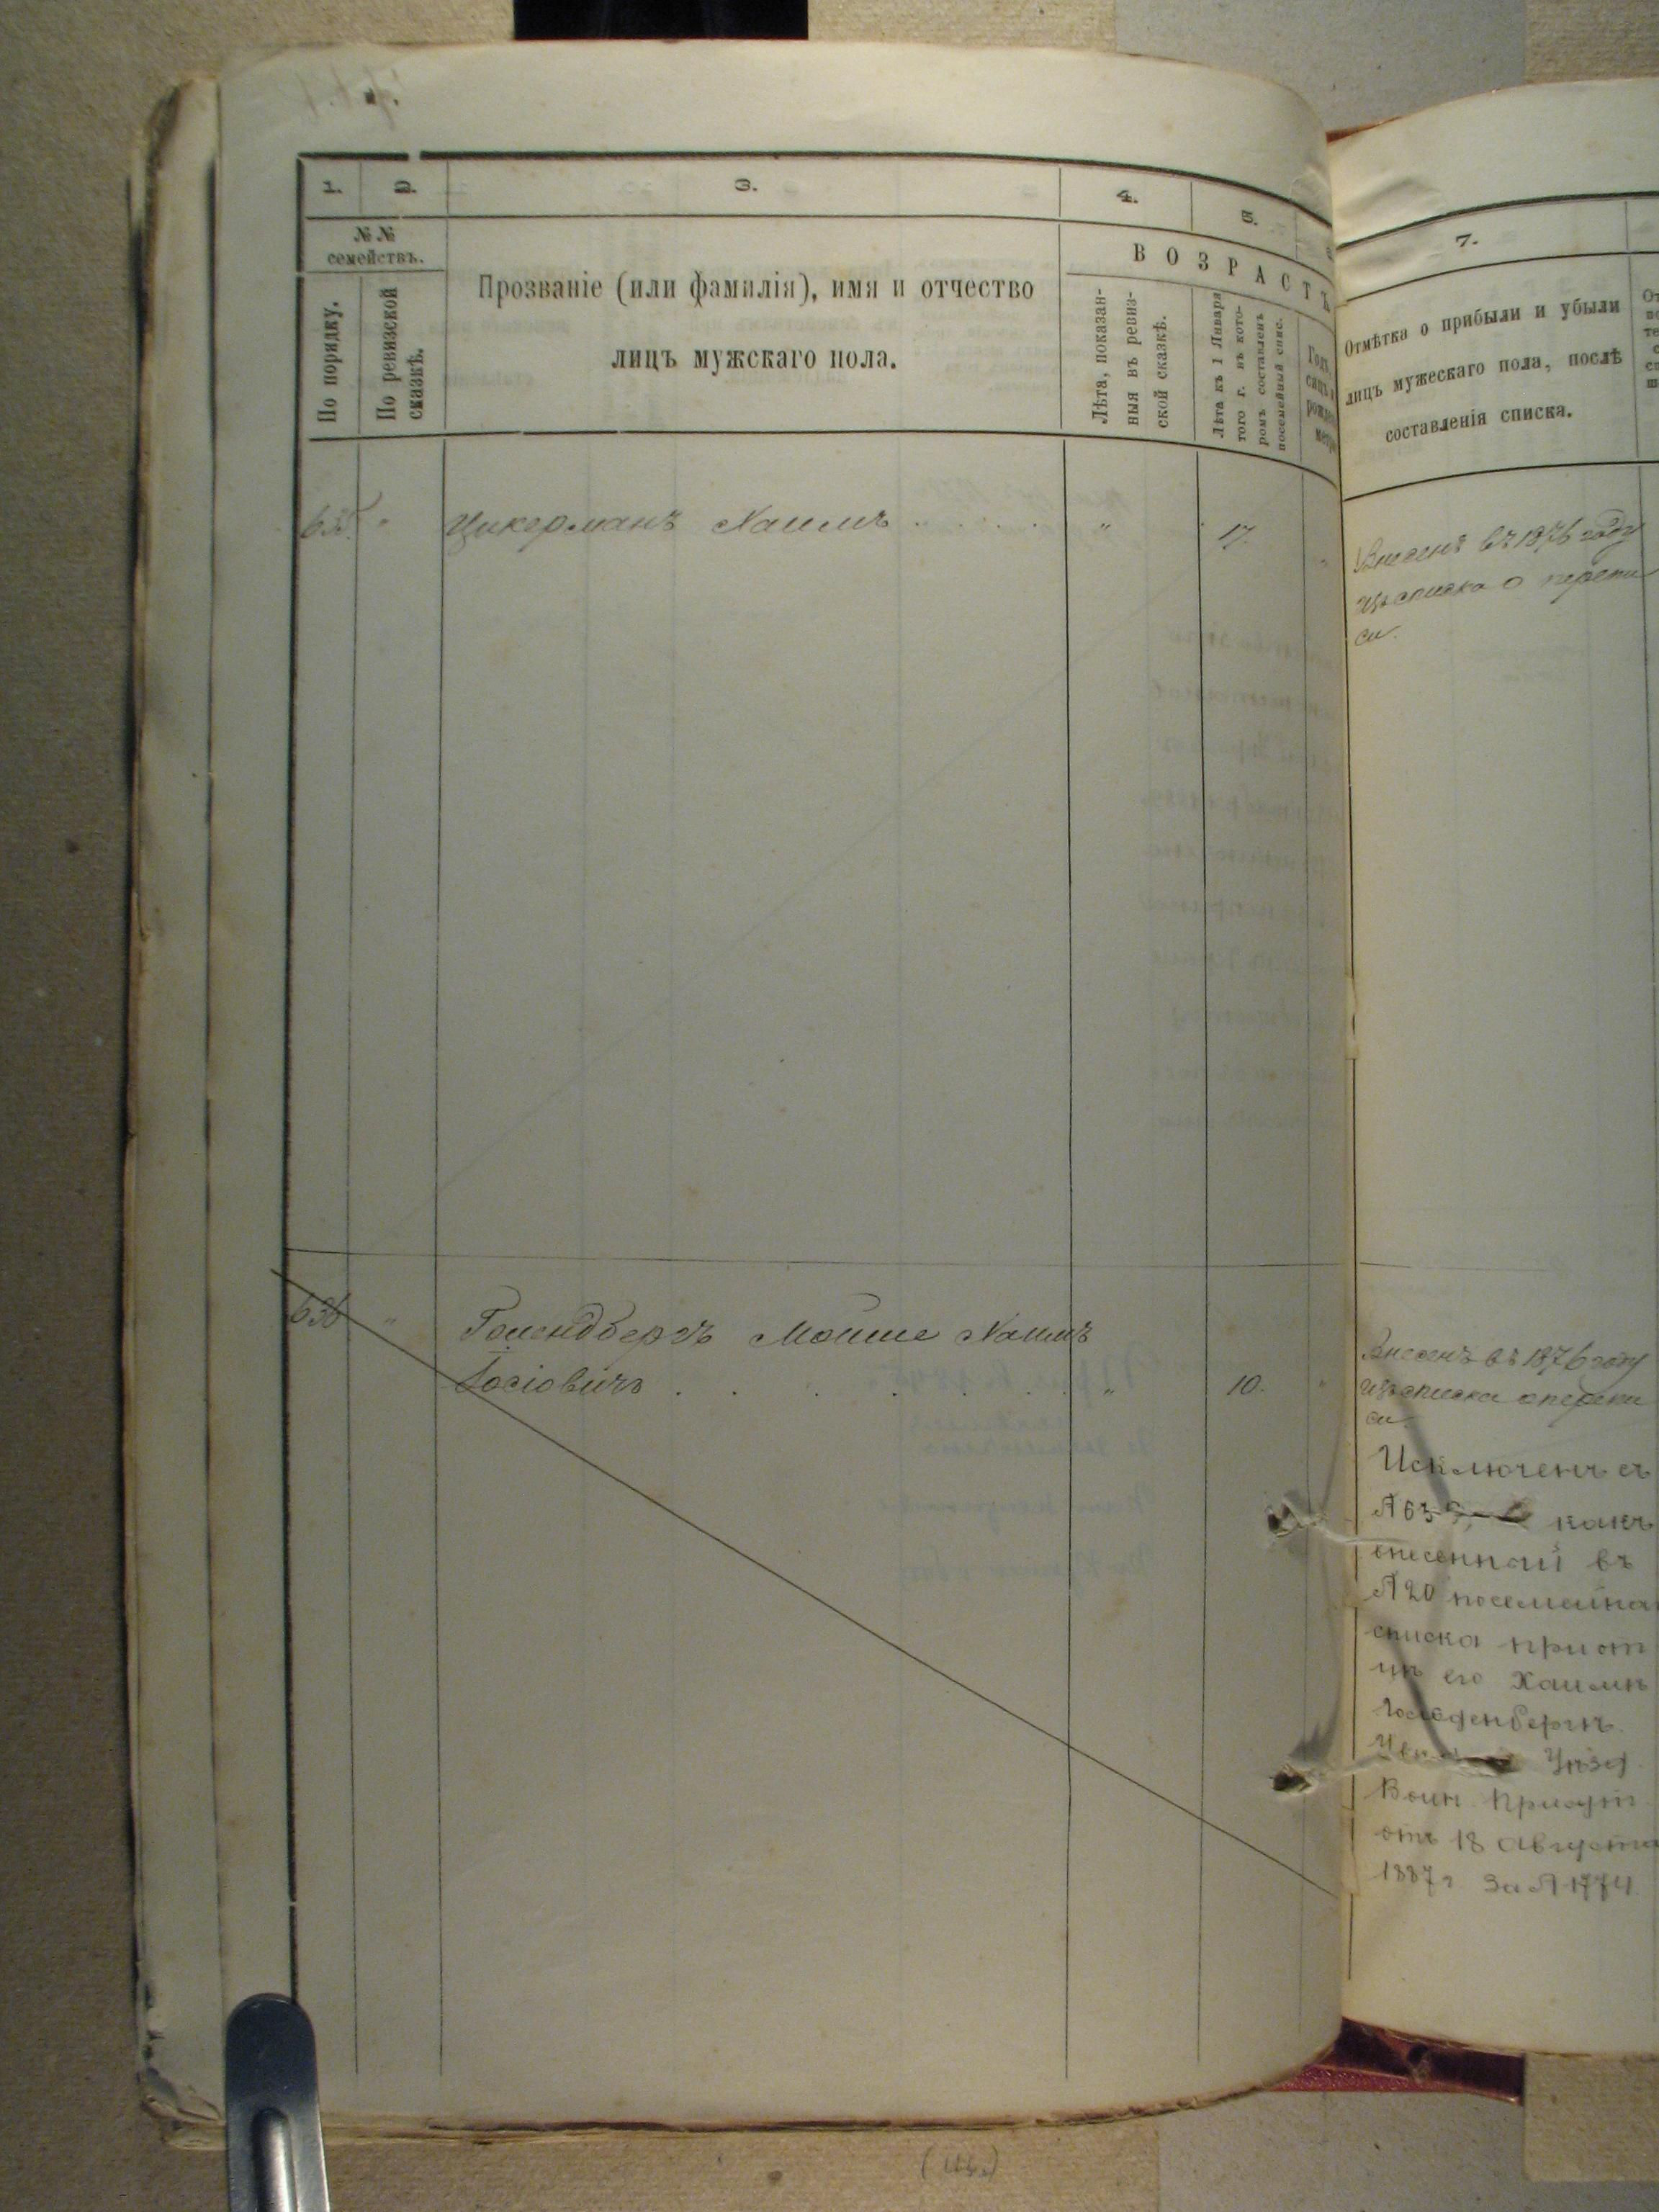 1.
2.
3.
4.
5.
№ №
семействъ.
По порядку.
По ревизской
сказкѣ.
Прозваніе (или фамилія), имя и отчество
лицъ мужскаго пола.
ВОЗРАСТЪ
Лѣта, показан-
ныя въ ревиз-
ской сказкѣ.
Лѣта къ 1 Января
того г. въ кото-
ромъ составленъ
посемейный спис.
7.
Отмѣтка о прибыли и убыли
лицъ мужескаго пола, послѣ
составленія списка.
635. " Цикерманъ Хаимъ . . . . " 17. "
Внесенъ въ 1876 году
изъ списка о перепи
си.
636 " Мойше Хаимъ
Іосіовичъ . . . . . " 10. "
Внесенъ въ 1876 году
изъ списка о перепи
си.
Исключенъ съ
какъ
внесенный въ
№ 20 посемейна
списка при от
цѣ его Хаимѣ
Уѣзд.
Воин. Присут
отъ 18 Августа
1887 г за № 1774